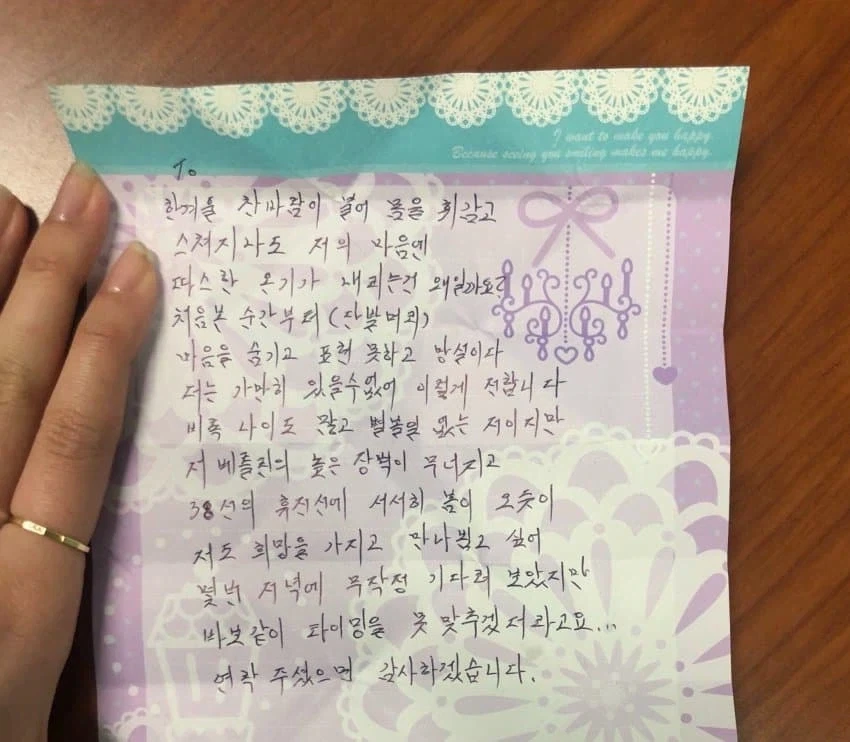 I want to make you happy
Because seeing you smiling makes me happy.
To
한겨울 찬바람이 불어 몸을 휘감고
스쳐지나도 저의 마음엔
따스한 온기가 재피는건 왜일까요?
처음본 순간부터 (단발머리)
마음을 숨기고 표현 못하고 망설이다
더는 가만히 있을수없어 이렇게 전합니다
비록 나이도 많고 별볼일 없는 저이지만
저 베를린의 높은 장벽이 무너지고
38선의 휴전선에 서서히 봄이 오슷이
저도 희망을 가지고 만나뵙고 싶어
몇번 저녁에 무작정 기다려 보았지만
바보같이 타이밍을 못 맞추겠더라고요...
연락 주셨으면 감사하겠습니다.